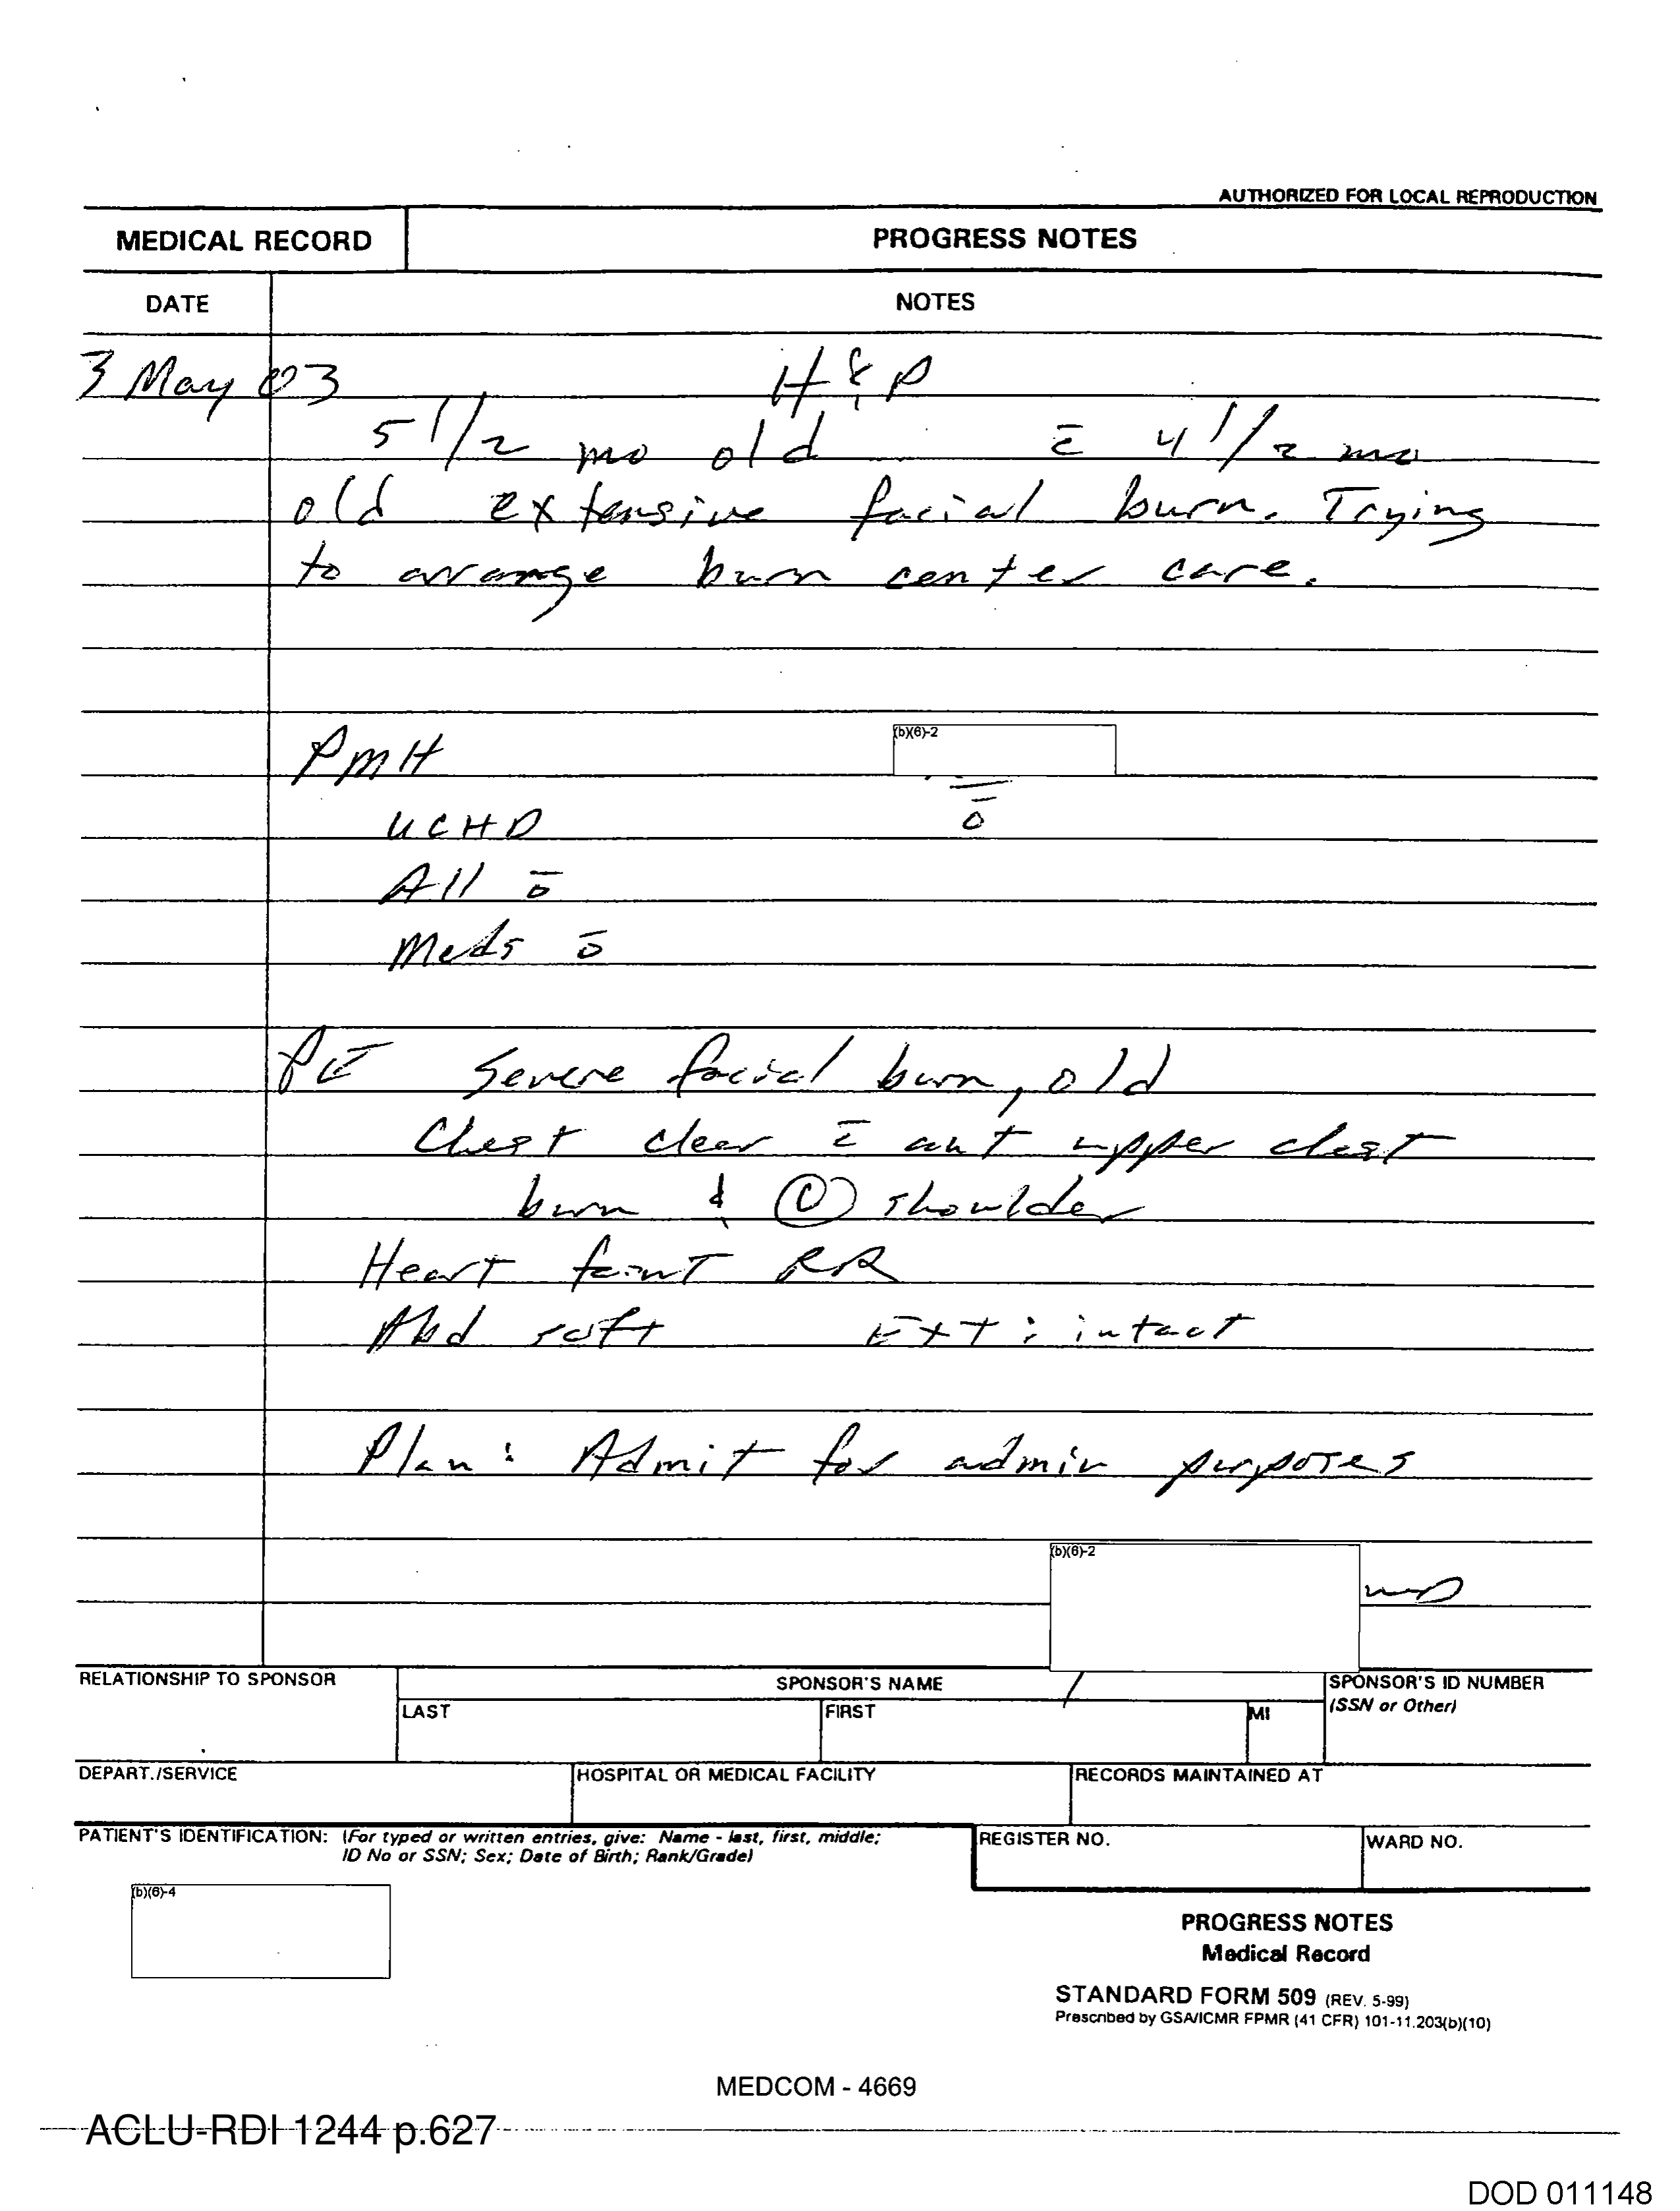 AUTHORIZED FOR LOCAL REPRODUCTION
MEDICAL RECORD PROGRESS NOTES
DATE NOTES
3 May 03 H & P
5 1/2 mo old c̄ 4 1/2 mo
old extensive facial burn. Trying
to arrange burn center care.
(b)(6)-2
PMH
UCHD ō
All ō
Meds ō
PE Severe facial burn, old
Chest clear c̄ ant upper chest
burn & shoulder
Heart faint RR
Abd soft EXT: intact
Plan: Admit for admin purposes
(b)(6)-2
MD
RELATIONSHIP TO SPONSOR SPONSOR'S NAME SPONSOR'S ID NUMBER
LAST FIRST MI (SSN or Other)
DEPART./SERVICE HOSPITAL OR MEDICAL FACILITY RECORDS MAINTAINED AT
PATIENT'S IDENTIFICATION: (For typed or written entries, give: Name - last, first, middle; REGISTER NO. WARD NO.
ID No or SSN; Sex; Date of Birth; Rank/Grade)
(b)(6)-4
PROGRESS NOTES
Medical Record
STANDARD FORM 509 (REV. 5-99)
Prescribed by GSA/ICMR FPMR (41 CFR) 101-11.203(b)(10)
MEDCOM - 4669
ACLU-RDI 1244 p.627
DOD 011148